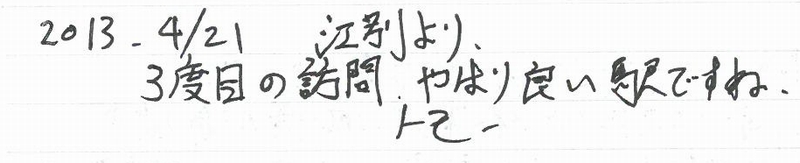 2013. 4/21 江別より、
3度目の訪問、やはり良い駅ですね、
トモー